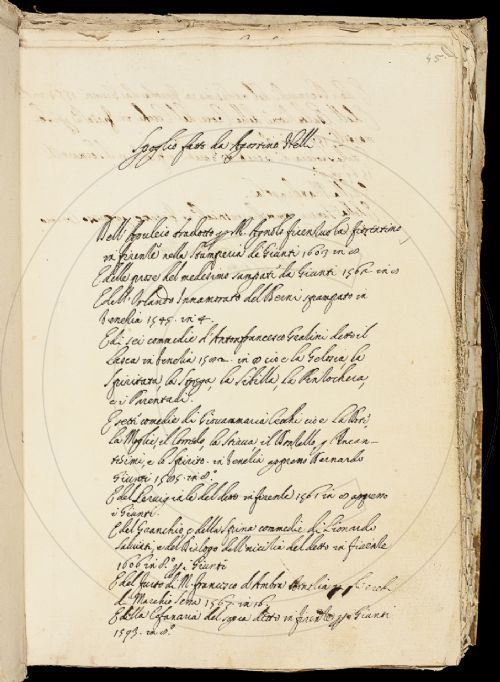 45
Spoglio fatto da Agostino Nelli
Dell'Apuleio tradotto p M. Agnolo firenzuola fiorentino
in firenze nella Stamperia de Giunti 1603 in 8
E delle prose del medesimo stampati da Giunti 1562 in 8
E dell'Orlando Innamorato del Berni stampato in
Venetia 1545. in 4.
E di sei commedie d'Antonfrancesco Grazini detto il
Lasca in Venetia in 8 cio e la Gelosia la
Spiritata, la Strega, la Sibilla, la Pinzochera,
e i Parentadi.
E sette comedie di Giovammaria Cecchi cio e la Dote,
la Moglie, il Corredo, la Stiava il Donzello, gl' Incan-
tesimi, e lo Spirito. in Venetia appresso Bernardo
Giunti 1585. in 8.
E del Servigiale del detto in firenze 1561 in 8 appresso
i Giunti.
E del Granchio e della Spina commedie di Lionardo
Salviati, e del Dialogo dell'amicitia del detto in firenze
1606 in 8. pp i Giunti
E del furto di M. francesco d'Ambra
di Marchi Sena 1567. in 16.
E della Cofanaria del sopra detto in firenze pp i Giunti
1593. in 8.